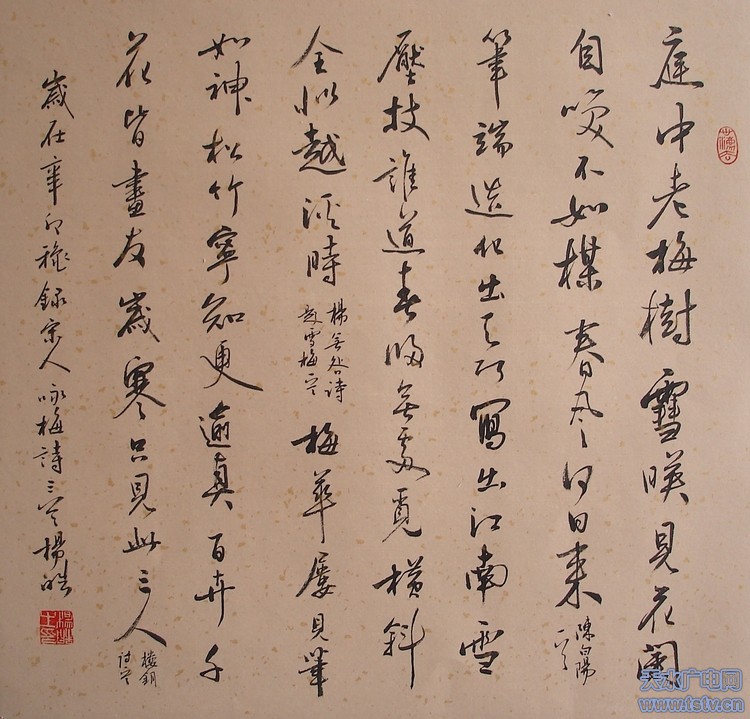 庭中老梅樹雪暎見花開
自嘆不如楳春風何日来
陳白陽
筆端造化出天巧寫出江南雪
壓枝誰道春歸無處覓橫斜
全似越溪時
楊無咎詩
題雪梅
梅華屢見筆
如神松竹寧知更逼真百卉千
花皆畫友歲寒只見此三人
樓鑰
詩
歲在辛卯穐録宋人咏梅詩三首楊皓
天水广电网
www.tstv.cn